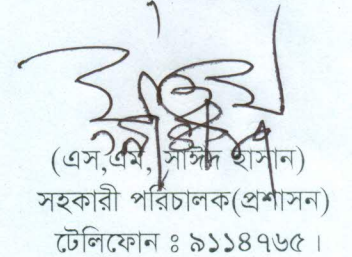 (এস,এম, সাঈদ হাসান)
সহকারী পরিচালক(প্রশাসন)
টেলিফোন ঃ ৯১১৪৭৬৫ ।